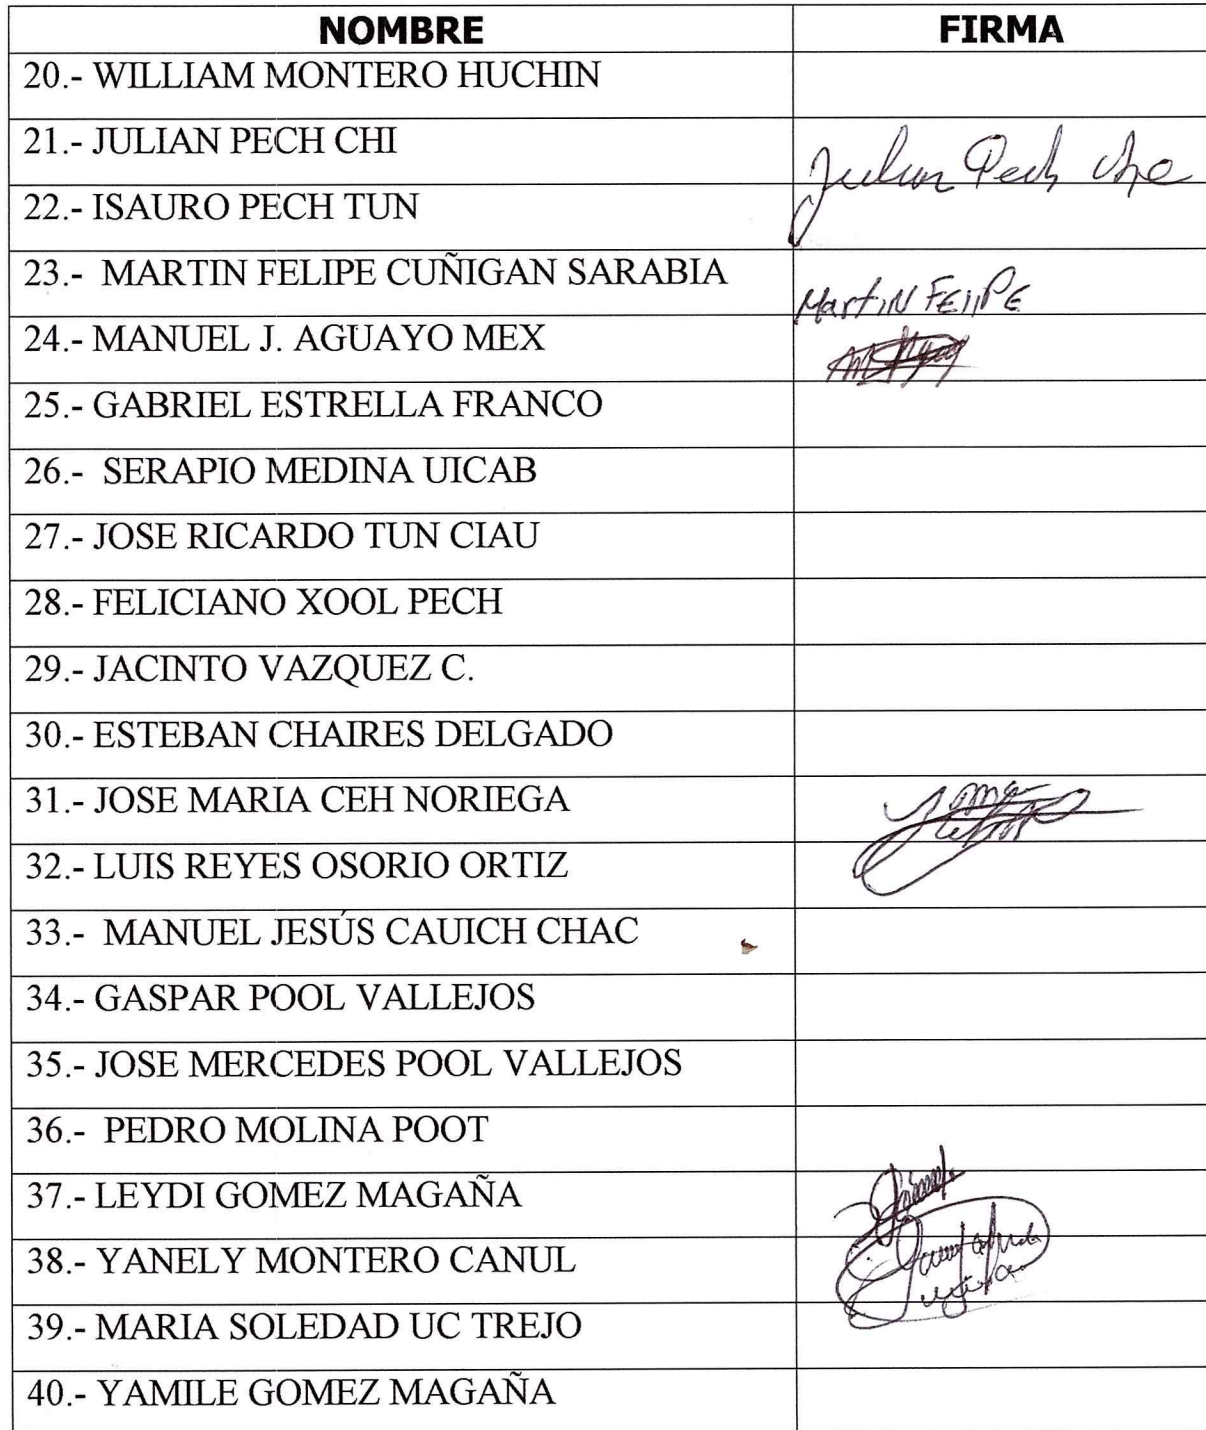 NOMBRE FIRMA
20.- WILLIAM MONTERO HUCHIN
21.- JULIAN PECH CHI Julian Pech che
22.- ISAURO PECH TUN
23.- MARTIN FELIPE CUÑIGAN SARABIA MartiN FEliPE
24.- MANUEL J. AGUAYO MEX
25.- GABRIEL ESTRELLA FRANCO
26.- SERAPIO MEDINA UICAB
27.- JOSE RICARDO TUN CIAU
28.- FELICIANO XOOL PECH
29.- JACINTO VAZQUEZ C.
30.- ESTEBAN CHAIRES DELGADO
31.- JOSE MARIA CEH NORIEGA
32.- LUIS REYES OSORIO ORTIZ
33.- MANUEL JESÚS CAUICH CHAC
34.- GASPAR POOL VALLEJOS
35.- JOSE MERCEDES POOL VALLEJOS
36.- PEDRO MOLINA POOT
37.- LEYDI GOMEZ MAGAÑA
38.- YANELY MONTERO CANUL
39.- MARIA SOLEDAD UC TREJO
40.- YAMILE GOMEZ MAGAÑA